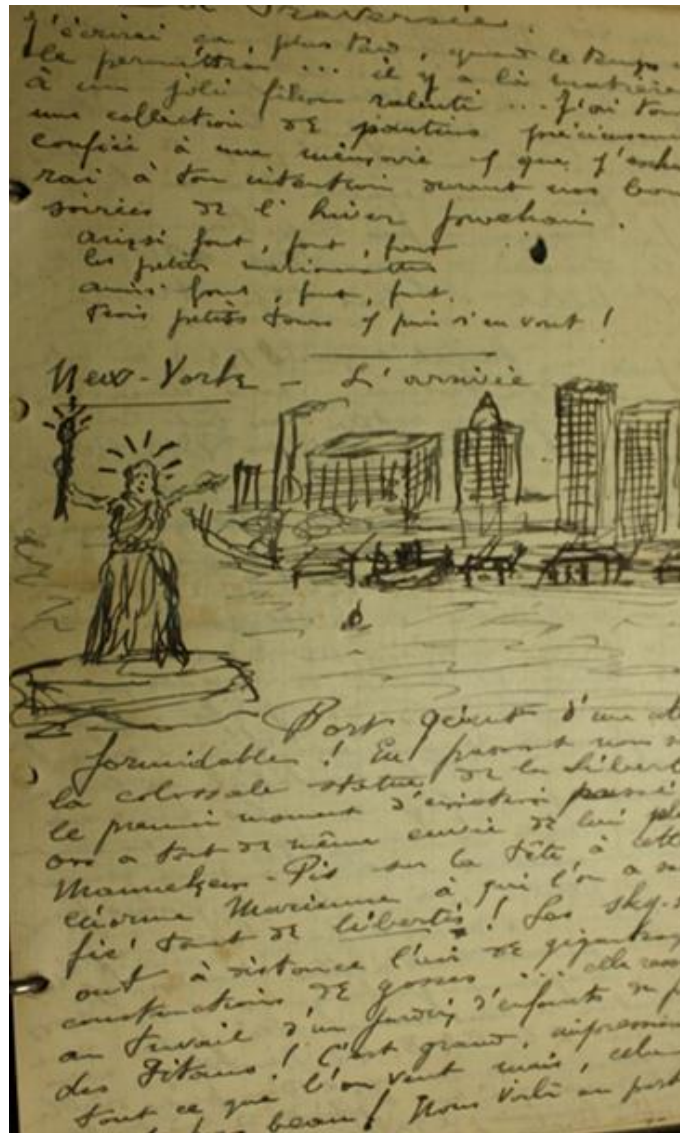 La Traversée.
J'écrirai ça plus tard, quand le temps
le permettra ... il y a là matière
à un joli film ralenti ... J'ai
une collection de pantins précieusement
confiée à une mémoire & que
rai à ton intention durant nos
soirées de l'hiver prochain.
ainsi font, font, font
les petites marionnettes
ainsi font, font, font.
trois petits tours & puis s'en vont !
New-York - L'arrivée
Port géant d'une
formidable ! En passant nous
la colossale statue de la
le premier moment d'émotion passé
on a tout de même envie de lui
Manneken-Pis sur la tête à cette
énorme Marianne à qui l'on a
fié tant de libertés ! Les sky-
ont à distance l'air de
constructions de gosses ... elle
au travail d'un jardin d'enfants
des Titans ! C'est grand,
tout ce que l'on veut mais,
beau ! Nous voilà au port